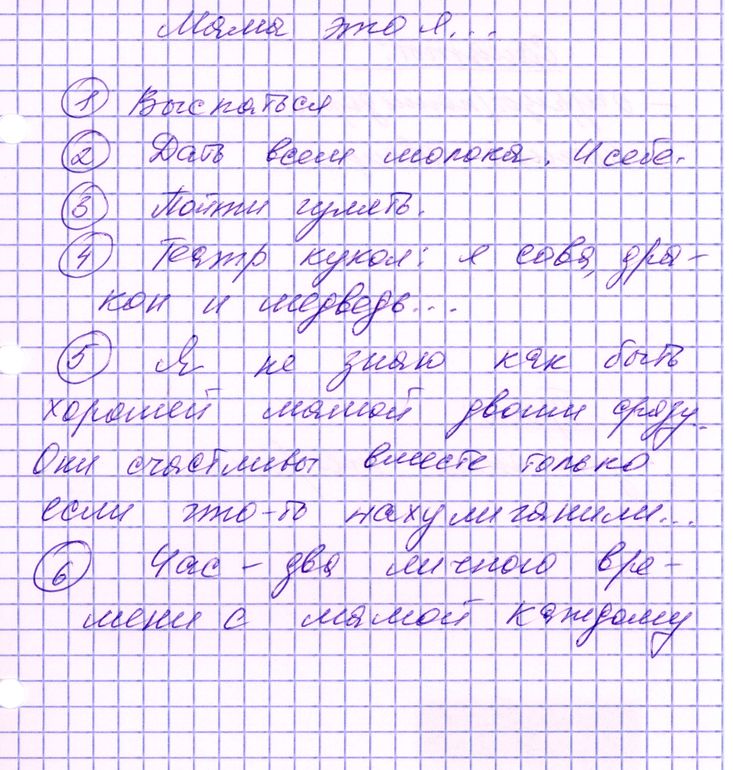 Мама это я...
1 Выспаться
2 Дать всем молока. И себе.
3 Пойти гулять.
4 Театр кукол: я сова, дра-
кон и медведь...
5 Я не знаю как быть
хорошей мамой двоим сразу.
Они счастливы вместе только
если что-то нахулиганили...
6 Час - два личного вре-
мени с мамой каждому